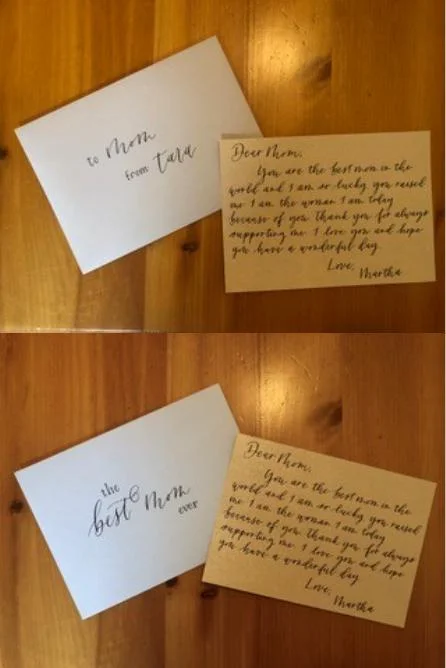 to Mom
from Tara
Dear Mom,
You are the best mom in the
world and I am so lucky you raised
me I am the woman I am today
because of you Thank you for always
supporting me I love you and hope
you have a wonderful day
Love,
Martha
the
best Mom
ever
Dear Mom,
You are the best mom in the
world and I am so lucky you raised
me I am the woman I am today
because of you Thank you for always
supporting me I love you and hope
you have a wonderful day
Love,
Martha